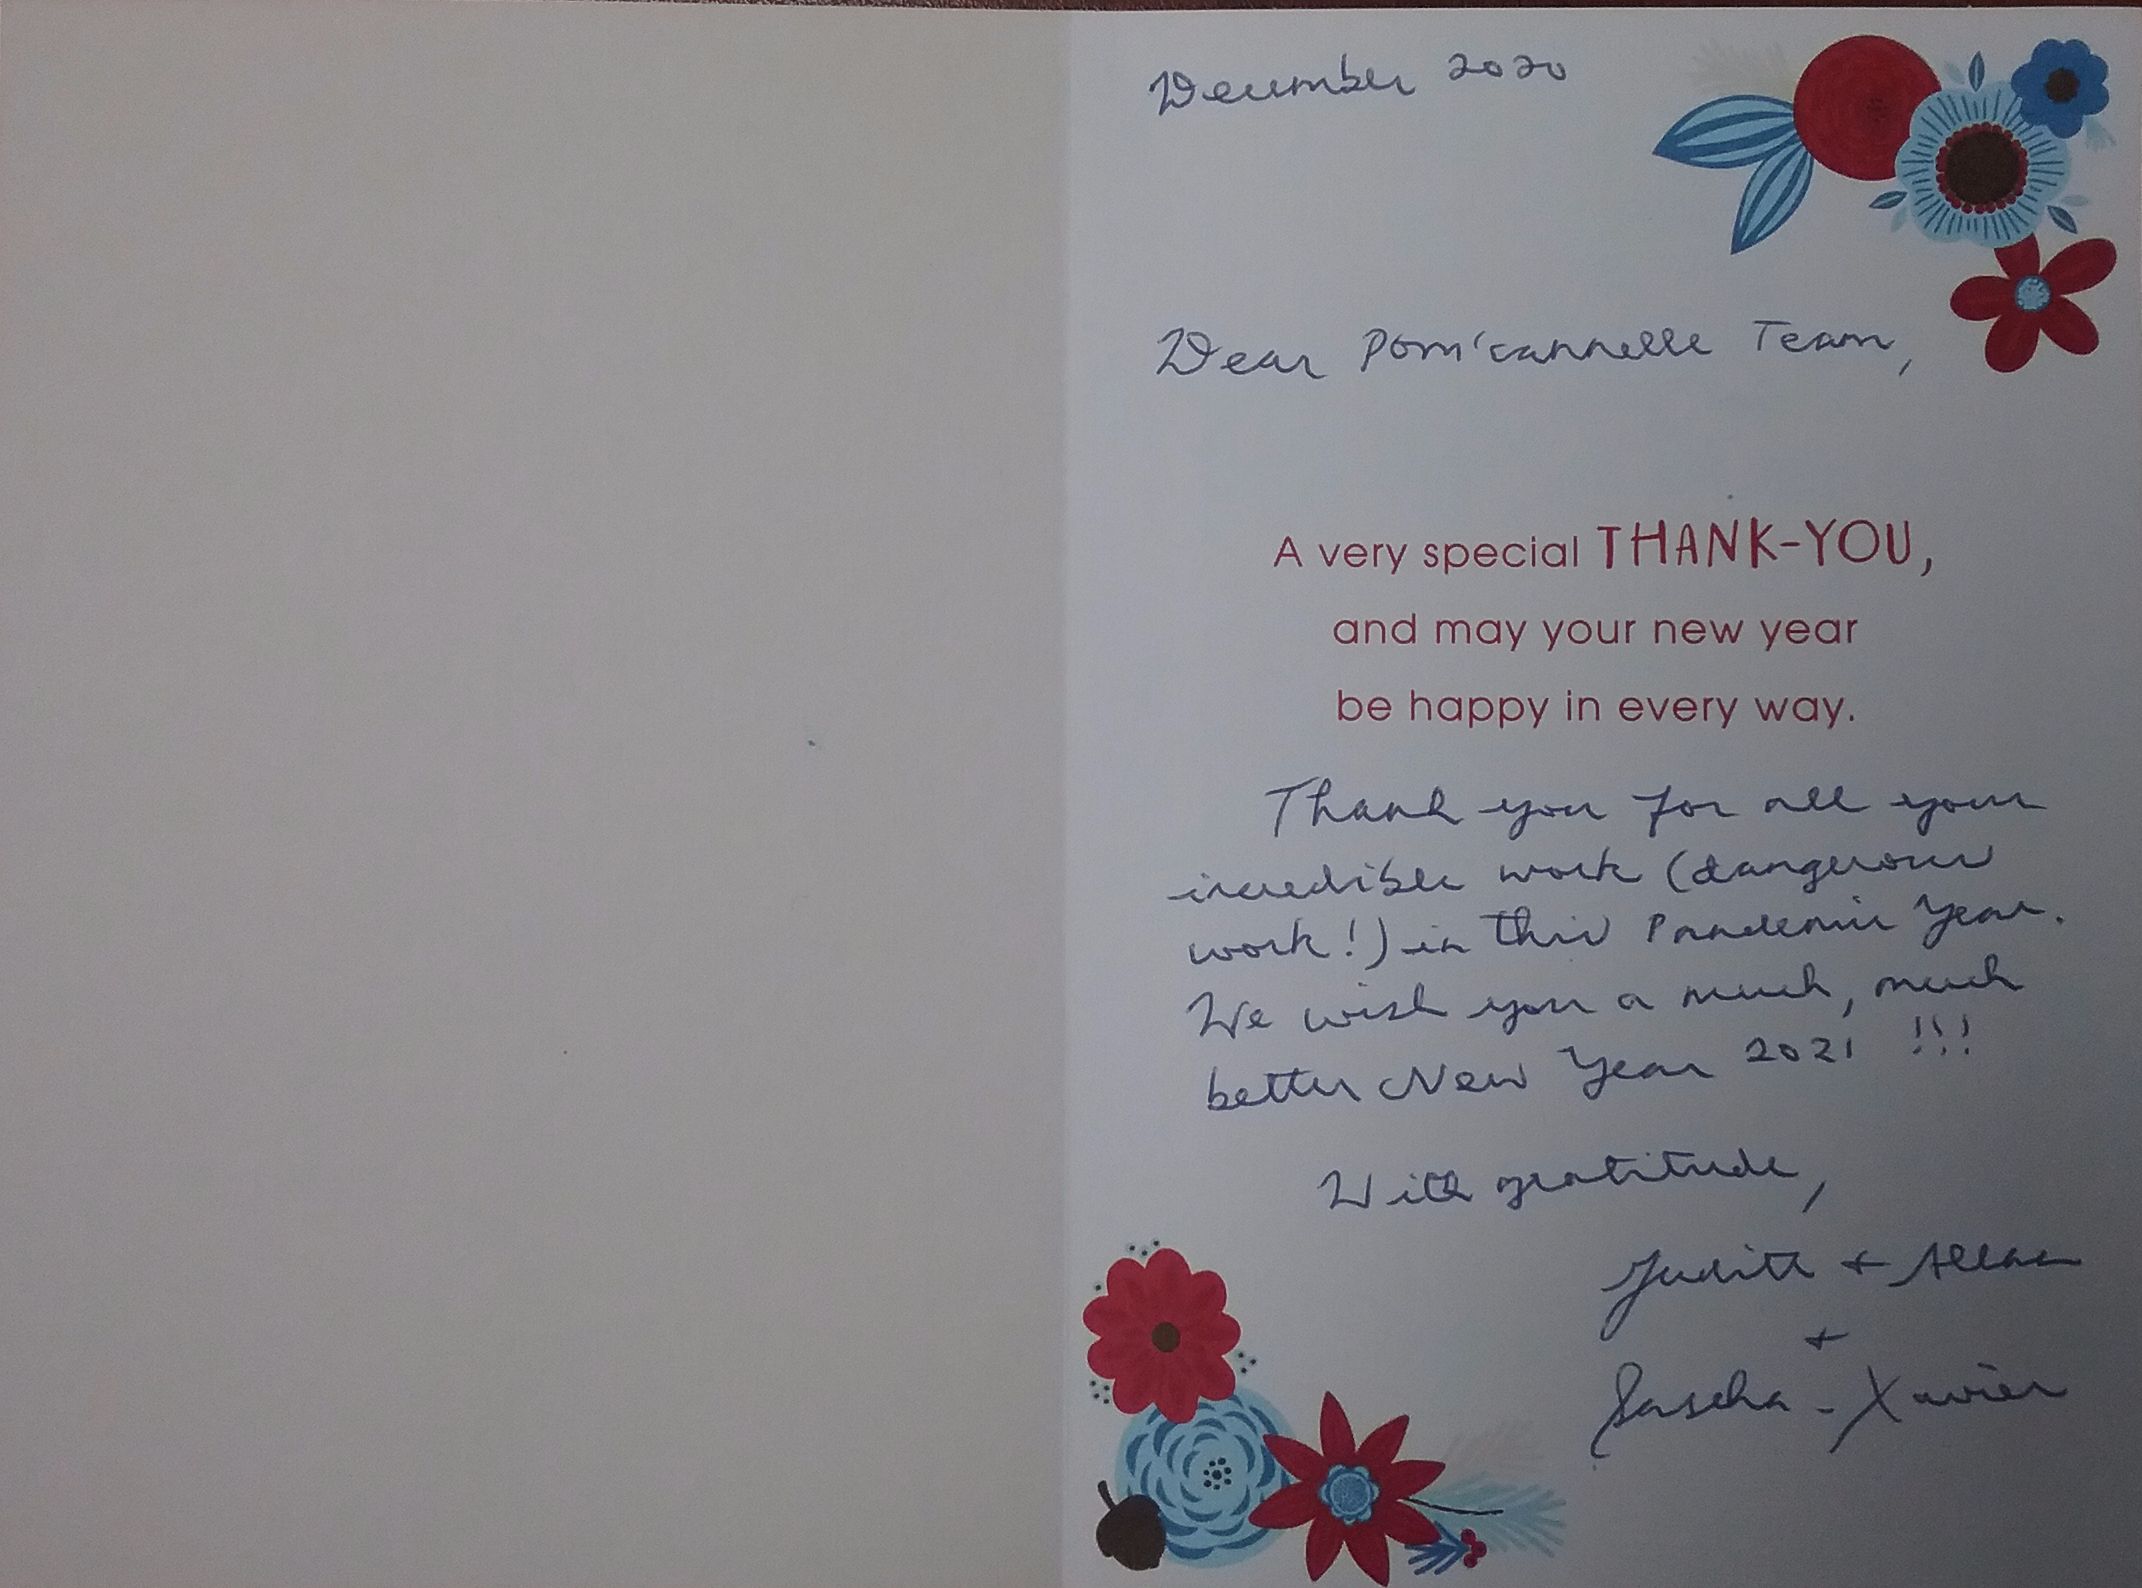 December 2020
Dear Pom'cannelle Team,
A very special THANK-YOU,
and may your new year
be happy in every way.
Thank you for all your
incredible work (dangerous
work!) in this Pandemic Year.
We wish you a much, much
better New Year 2021 !!!
With gratitude,
Judith + Allan
+
Sascha-Xavier